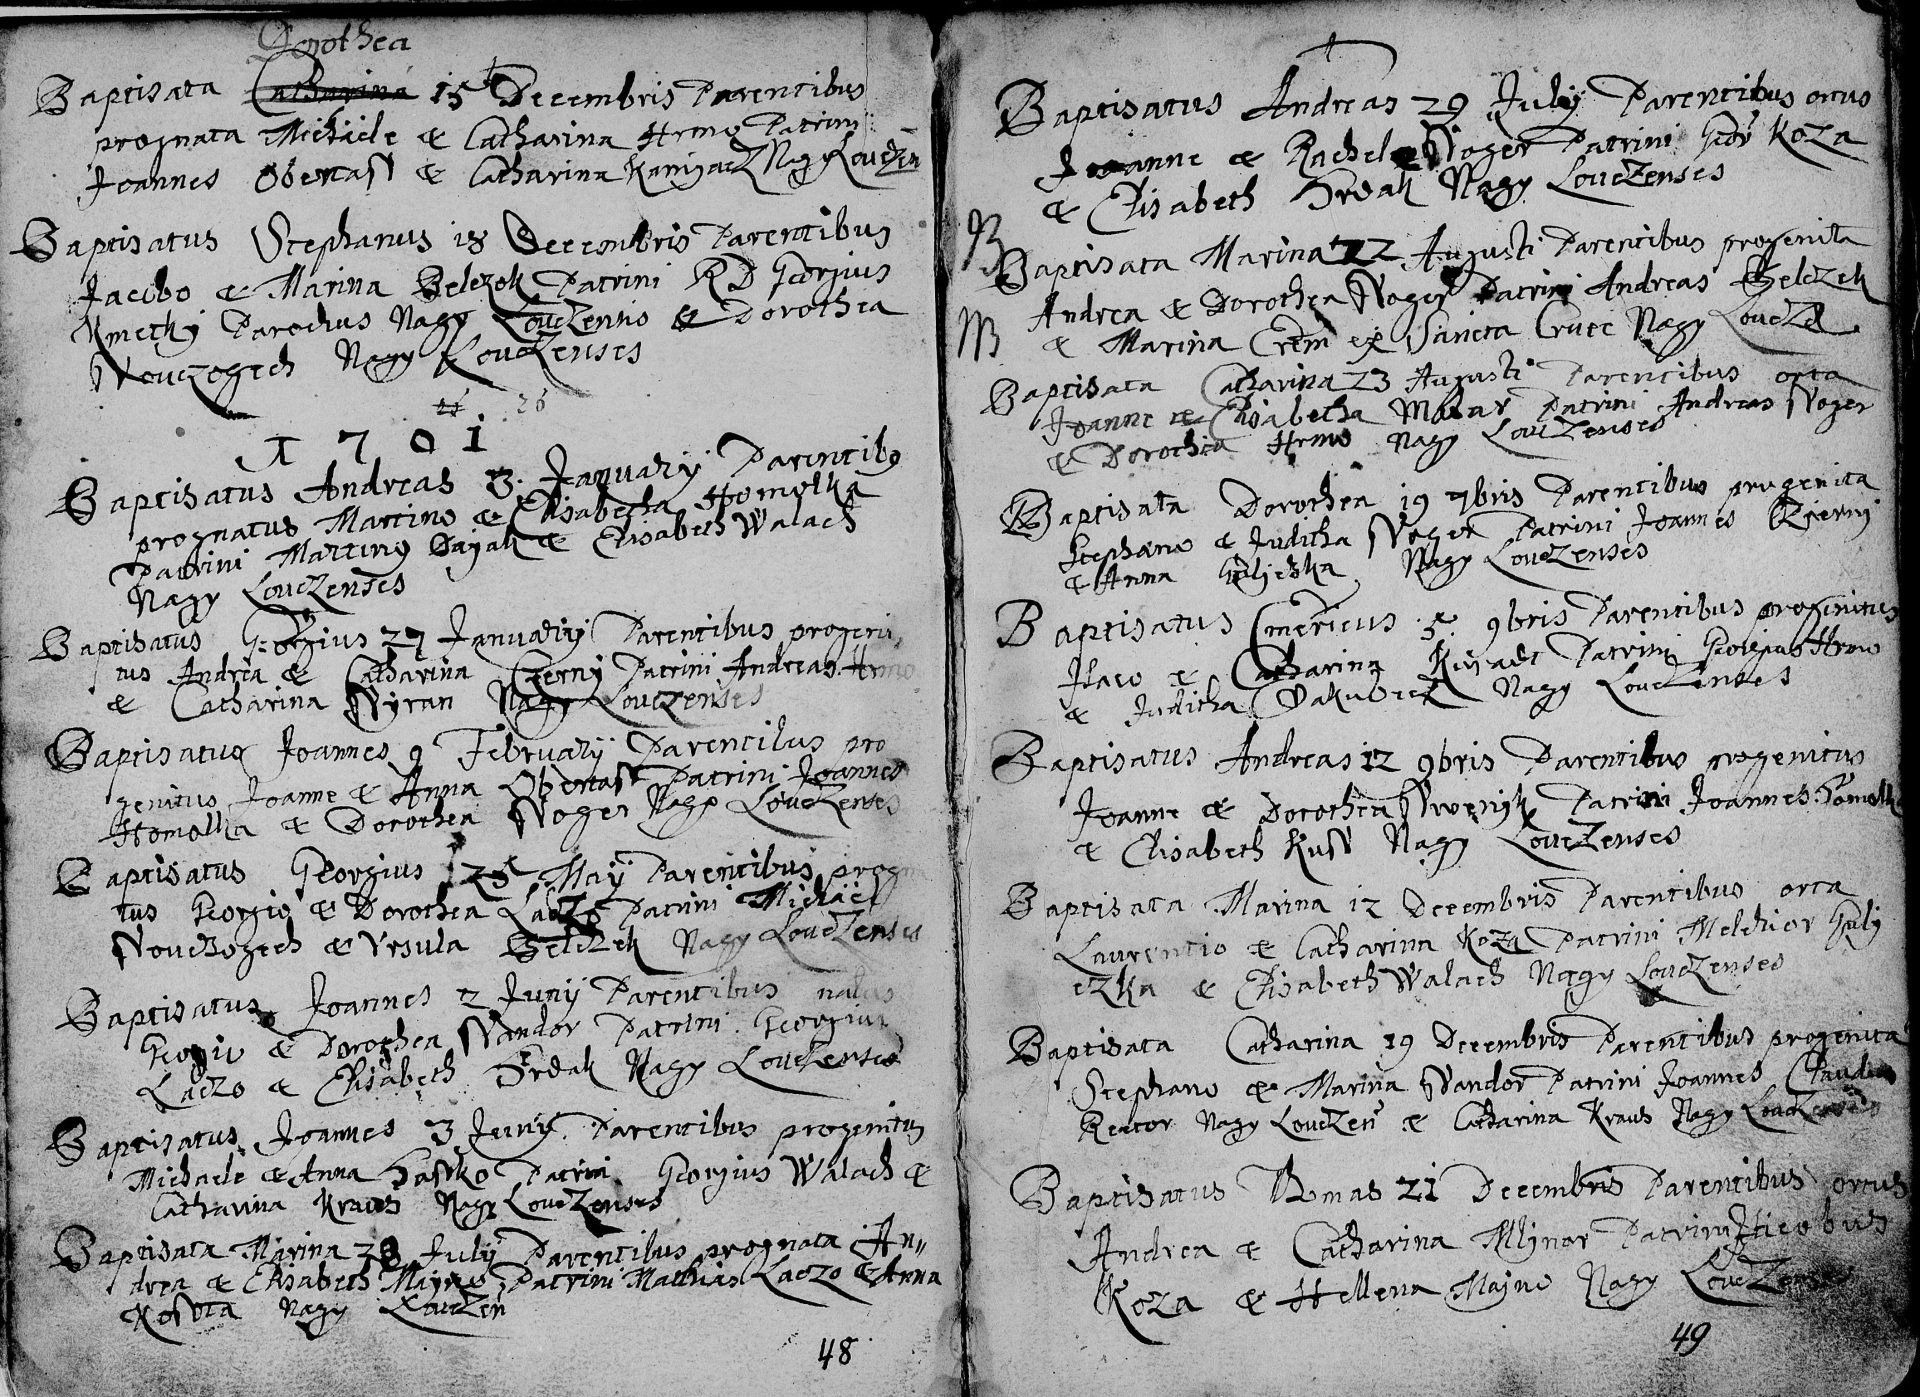 Dorothea
Baptisata Catharina 15 Decembris Parentibus
prognata Michaele & Catharina Hrmo Patrini
Joannes & Catharina Nagy Louczen
Baptisatus Stephanus 18 Decembris Parentibus
Jacobo & Marina Belczek Patrini RD Georgius
Kmethy Parochus Nagy Louczensis & Dorothea
Nagy Louczenses
26
1701
Baptisatus Andreas 3 January Parentibus
prognatus Martino & Elisabetha Homolka
Patrini Martinus & Elisabeth Walach
Nagy Louczenses
Baptisatus Georgius 27 January Parentibus progeni
tus Andrea & Catharina Czerny Patrini Andreas Hrmo
& Catharina Nagy Louczenses
Baptisatus Joannes 9 February Parentibus pro
genitus Joanne & Anna Patrini Joannes
Homolka & Dorothea Woger Nagy Louczenses
Baptisatus Georgius 25 May Parentibus progn
tus Georgio & Dorothea Laczo Patrini Michael
& Ursula Belczek Nagy Louczenses
Baptisatus Joannes 2 Juny Parentibus natus
Georgio & Dorothea Wandor Patrini Georgius
Laczo & Elisabeth Hrdak Nagy Louczenses
Baptisatus Joannes 3 Juny Parentibus progenitus
Michaele & Anna Patrini Georgius Walach &
Catharina Kraus Nagy Louczenses
Baptisata Marina July Parentibus prognata An=
drea & Elisabeth Majno Patrini Mathias Laczo & Anna
Nagy Louczen
48
Baptisatus Andreas 29 July Parentibus ortus
Joanne & Rachel Woger Patrini Geor Koza
& Elisabeth Hrdak Nagy Louczenses
Baptisata Marina 22 Augusti Parentibus progenita
Andrea & Dorothea Woger Patrini Andreas Belczek
& Marina ex Sancta Cruce Nagy Loucze
Baptisata Catharina 23 Augusti Parentibus orta
Joanne & Elisabetha Patrini Andreas Woger
& Dorothea Hrmo Nagy Louczenses
Baptisata Dorothea 19 7bris Parentibus progenita
Stephano & Juditha Woger Patrini Joannes Czerny
& Anna Nagy Louczenses
Baptisatus Emericus 5 9bris Parentibus progenitus
& Catharina Patrini Georgius Hrmo
& Juditha Nagy Louczenses
Baptisatus Andreas 12 9bris Parentibus progenitus
Joanne & Dorothea Patrini Joannes Homolk
& Elisabeth Nagy Louczenses
Baptisata Marina 12 Decembris Parentibus orta
Laurentio & Catharina Koza Patrini Melchior Guly
czka & Elisabeth Walach Nagy Louczenses
Baptisata Catharina 19 Decembris Parentibus progenita
Stephano & Marina Wandor Patrini Joannes Claudius
Rector Nagy Louczen & Catharina Kraus Nagy Louczenses
Baptisatus Thomas 21 Decembris Parentibus ortus
Andrea & Catharina Mlynar Patrini Jacobus
Koza & Hellena Majno Nagy Louczenses
49